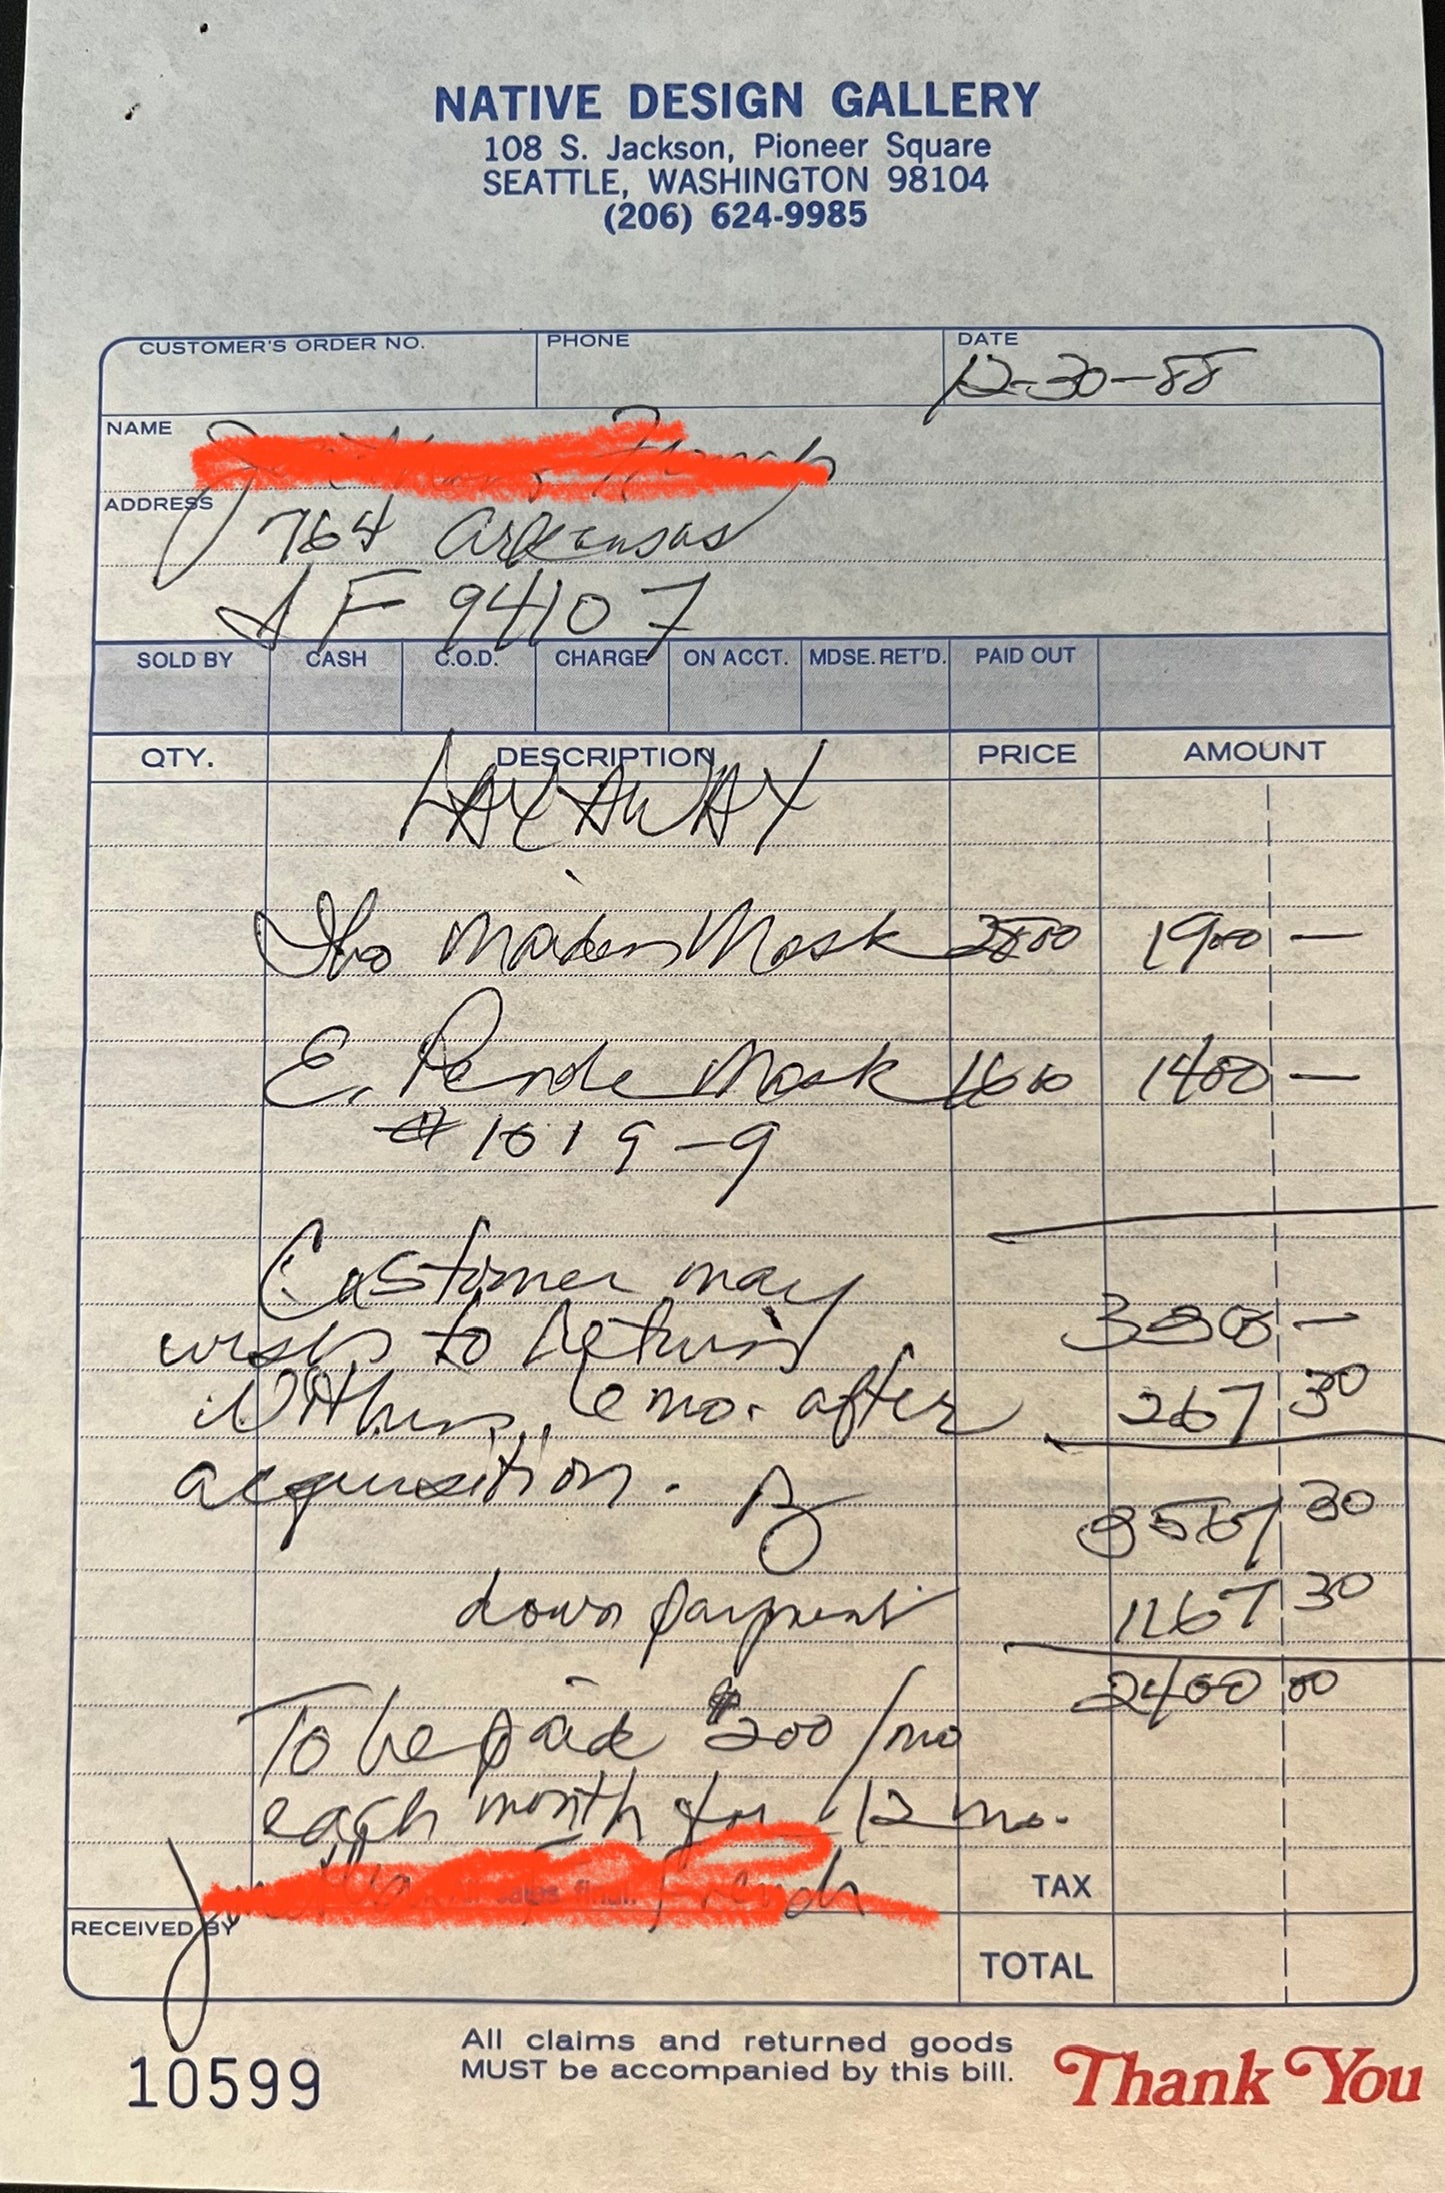 NATIVE DESIGN GALLERY
108 S. Jackson, Pioneer Square
SEATTLE, WASHINGTON 98104
(206) 624-9985
CUSTOMER'S ORDER NO. PHONE DATE
12-30-88
NAME
ADDRESS
764 Arkansas
SF 94107
SOLD BY CASH C.O.D. CHARGE ON ACCT. MDSE. RET'D. PAID OUT
QTY. DESCRIPTION PRICE AMOUNT
LAYAWAY
Ibo Maiden Mask 1900 —
E. Pende Mask 1600 1400 —
#1019-9
Customer may
wish to return 3300 —
within 6 mo. after 267 30
acquisition. 3567 30
down payment 1167 30
2400 00
To be paid $200/mo
each month for 12 mo.
TAX
RECEIVED BY
TOTAL
10599
All claims and returned goods
MUST be accompanied by this bill.
Thank You